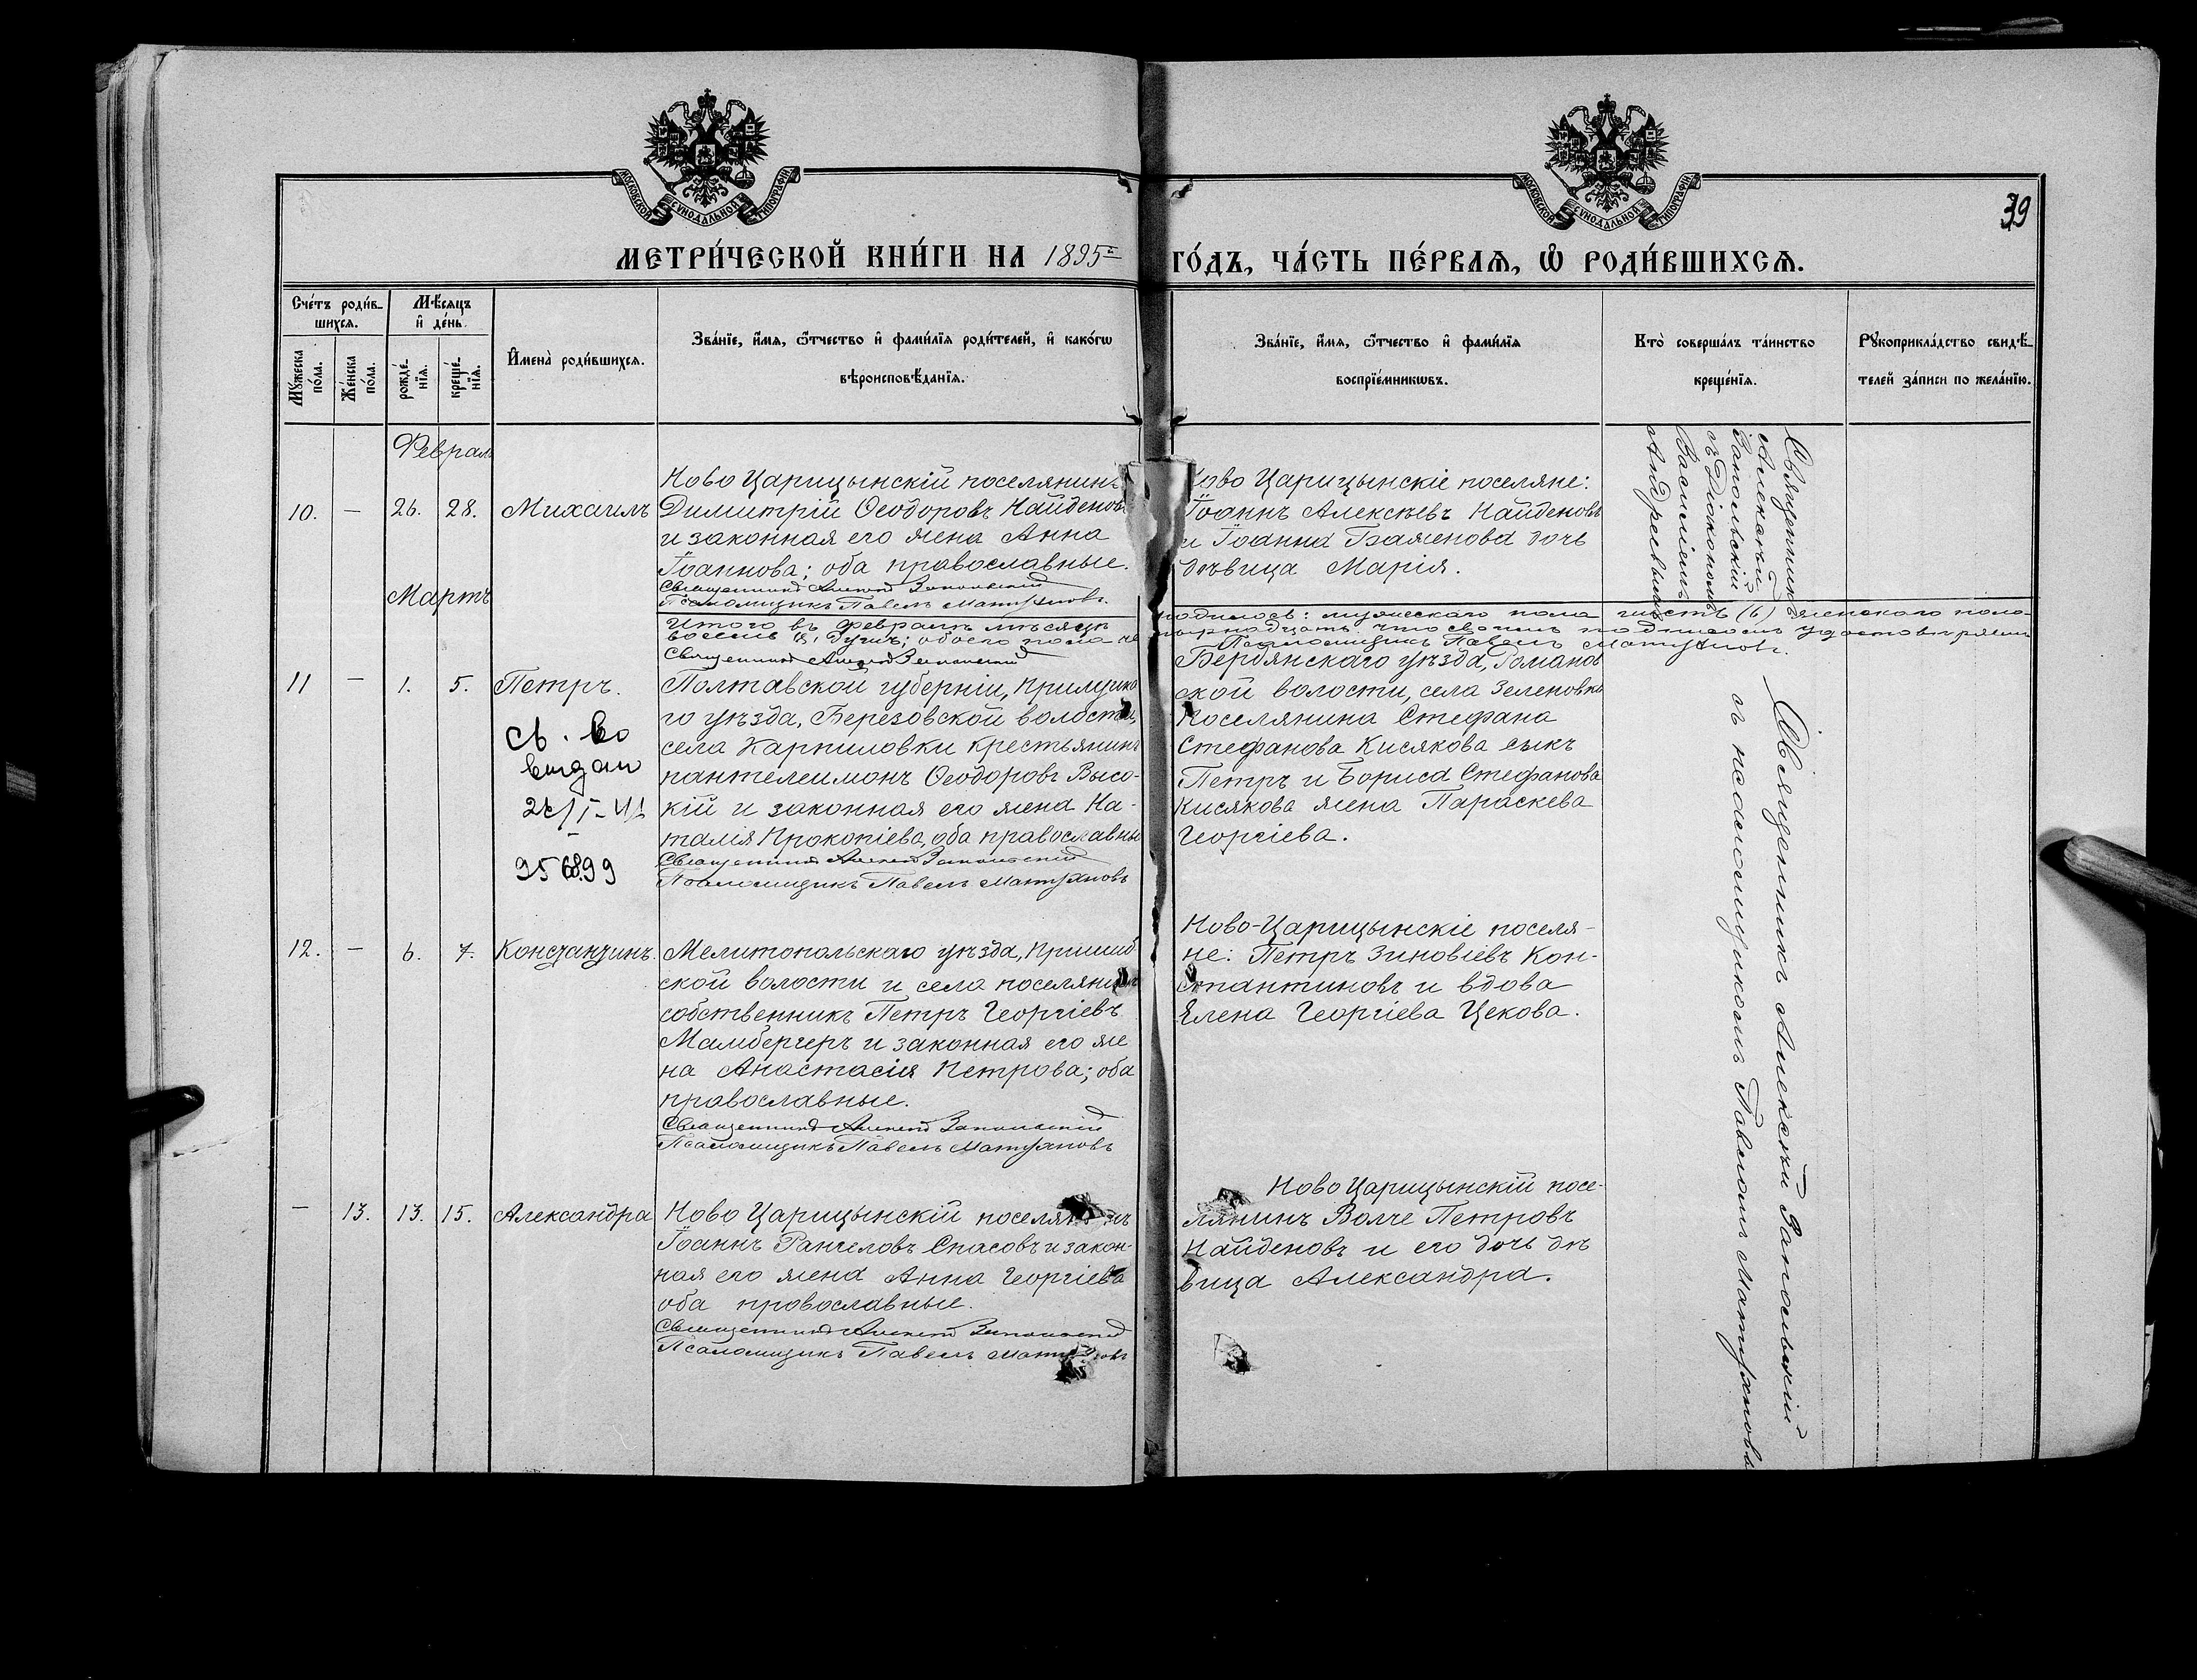 МОСКОВСКОЙ СУНОДАЛЬНОЙ ТИПОГРАФІИ
МОСКОВСКОЙ СУНОДАЛЬНОЙ ТИПОГРАФІИ
39
МЕТРИ́ЧЕСКОЙ КНИ́ГИ НА 1895й ГО́ДЪ, ЧА́СТЬ ПЕ́РВАѦ, Ѡ РОДИ́ВШИХСѦ.
Сче́тъ роди́в-
шихсѧ.
Мꙋ́жеска по́ла.
Же́нска по́ла.
Мѣ́сѧцъ
и҆ де́нь.
рожде́-
нїѧ.
креще́-
нїѧ.
И҆мена̀ роди́вшихсѧ.
Зва́нїе, и҆́мѧ, ѻ҆́тчество и҆ фами́лїѧ роди́телей, и҆ како́гѡ
вѣроисповѣ́данїѧ.
Зва́нїе, и҆́мѧ, ѻ҆́тчество и҆ фами́лїѧ
воспрїе́мникѡвъ.
Кто̀ соверша́лъ та́инство
креще́нїѧ.
Рꙋкоприкла́дство свидѣ́-
телей за́писи по жела́нїю.
Феврал
10. — 26. 28. Михаилъ
Ново Царицынскій поселянинъ
Димитрій Ѳеодоровъ Найденовъ
и законная его жена Анна
Іоаннова; оба православные.
Священникъ Алексѣй Запольскій
Псаломщикъ Павелъ Матусяновъ
Ново Царицынскіе поселяне:
Іоаннъ Алексѣевъ Найденовъ
и Іоанна Баженова дочь
дѣвица Марія.
Священникъ
Алексѣй
Запольскій
съ Діакономъ
Василіемъ
Андреевымъ
Мартъ
Итого въ Февралѣ мѣсяцѣ родилось: мужескаго пола шесть (6) женскаго пола
восемь (8) душъ; обоего пола четырнадцать что своимъ подписомъ удостовѣряемъ
Священникъ Алексѣй Запольскій
Псаломщикъ Павелъ
11 — 1. 5. Петръ.
Св. во
выдан
95 6899
Полтавской губерніи, Прилукска
го уѣзда, Березовской волости,
села Карпиловки крестьянинъ
Пантелеимонъ Ѳеодоровъ Высо-
кій и законная его жена На-
талія Прокопіева, оба православны
Священникъ Алексѣй Запольскій
Псаломщикъ Павелъ
Бердянскаго уѣзда, Романов
ской волости, села Зеленовки
поселянина Стефана
Стефанова Кисякова сынъ
Петръ и Бориса Стефанова
Кисякова жена Параскева
Георгіева.
Священникъ Алексѣй Запольскій
съ псаломщикомъ Павломъ
12. — 6. 7. Константинъ.
Мелитопольскаго уѣзда, Пришиб
ской волости и села поселянинъ
собственникъ Петръ Георгіевъ
Мамбергеръ и законная его же
на Анастасія Петрова; оба
православные.
Священникъ Алексѣй Запольскій
Псаломщикъ Павелъ
Ново-Царицынскіе поселя-
не: Петръ Зиновіевъ Кон-
стантиновъ и вдова
Елена Георгіева Цекова.
— 13. 13. 15. Александра
Ново Царицынскій поселянинъ
Іоаннъ Рангеловъ Спасовъ и закон-
ная его жена Анна Георгіева
оба православные.
Священникъ Алексѣй Запольскій
Псаломщикъ Павелъ
Ново Царицынскій посе-
лянинъ Волче Петровъ
Найденовъ и его дочь дѣ
вица Александра.